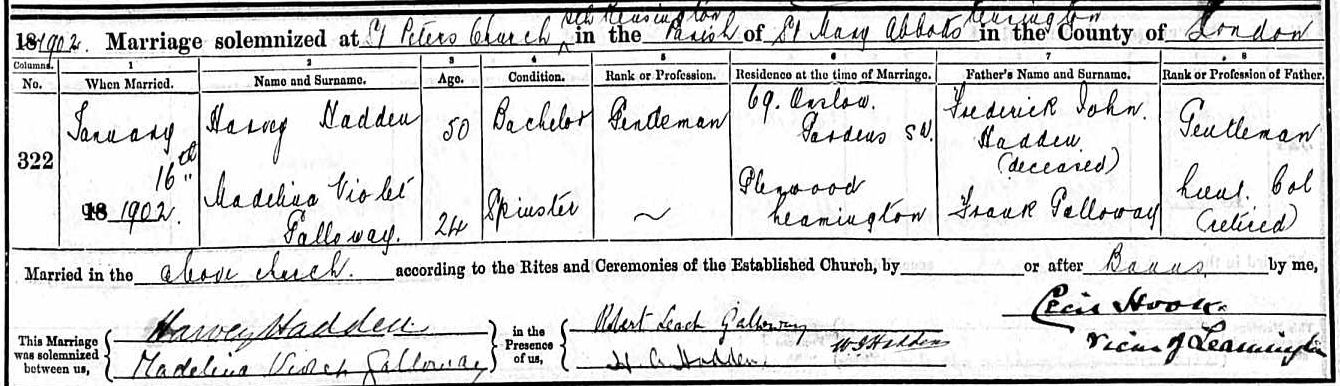 18 1902. Marriage solemnized at St Peters Church Sth Kensington in the Parish of St Mary Abbots Kensington in the County of London
Columns. 1 2 3 4 5 6 7 8
No. When Married. Name and Surname. Age. Condition. Rank or Profession. Residence at the time of Marriage. Father's Name and Surname. Rank or Profession of Father.
322 January 16th 18 1902. Harvey Hadden 50 Bachelor Gentleman 69. Onslow Gardens SW. Frederick John Hadden (deceased) Gentleman
Madelina Violet Galloway. 24 Spinster ~ Leamington Frank Galloway Lieut. Col (retired)
Married in the above church. according to the Rites and Ceremonies of the Established Church, by or after Banns by me,
This Marriage was solemnized between us, Harvey Hadden in the Presence of us, Robert Leach Galloway Cecil Hook
Madelina Violet Galloway H. C. Hadden Vicar of Leamington